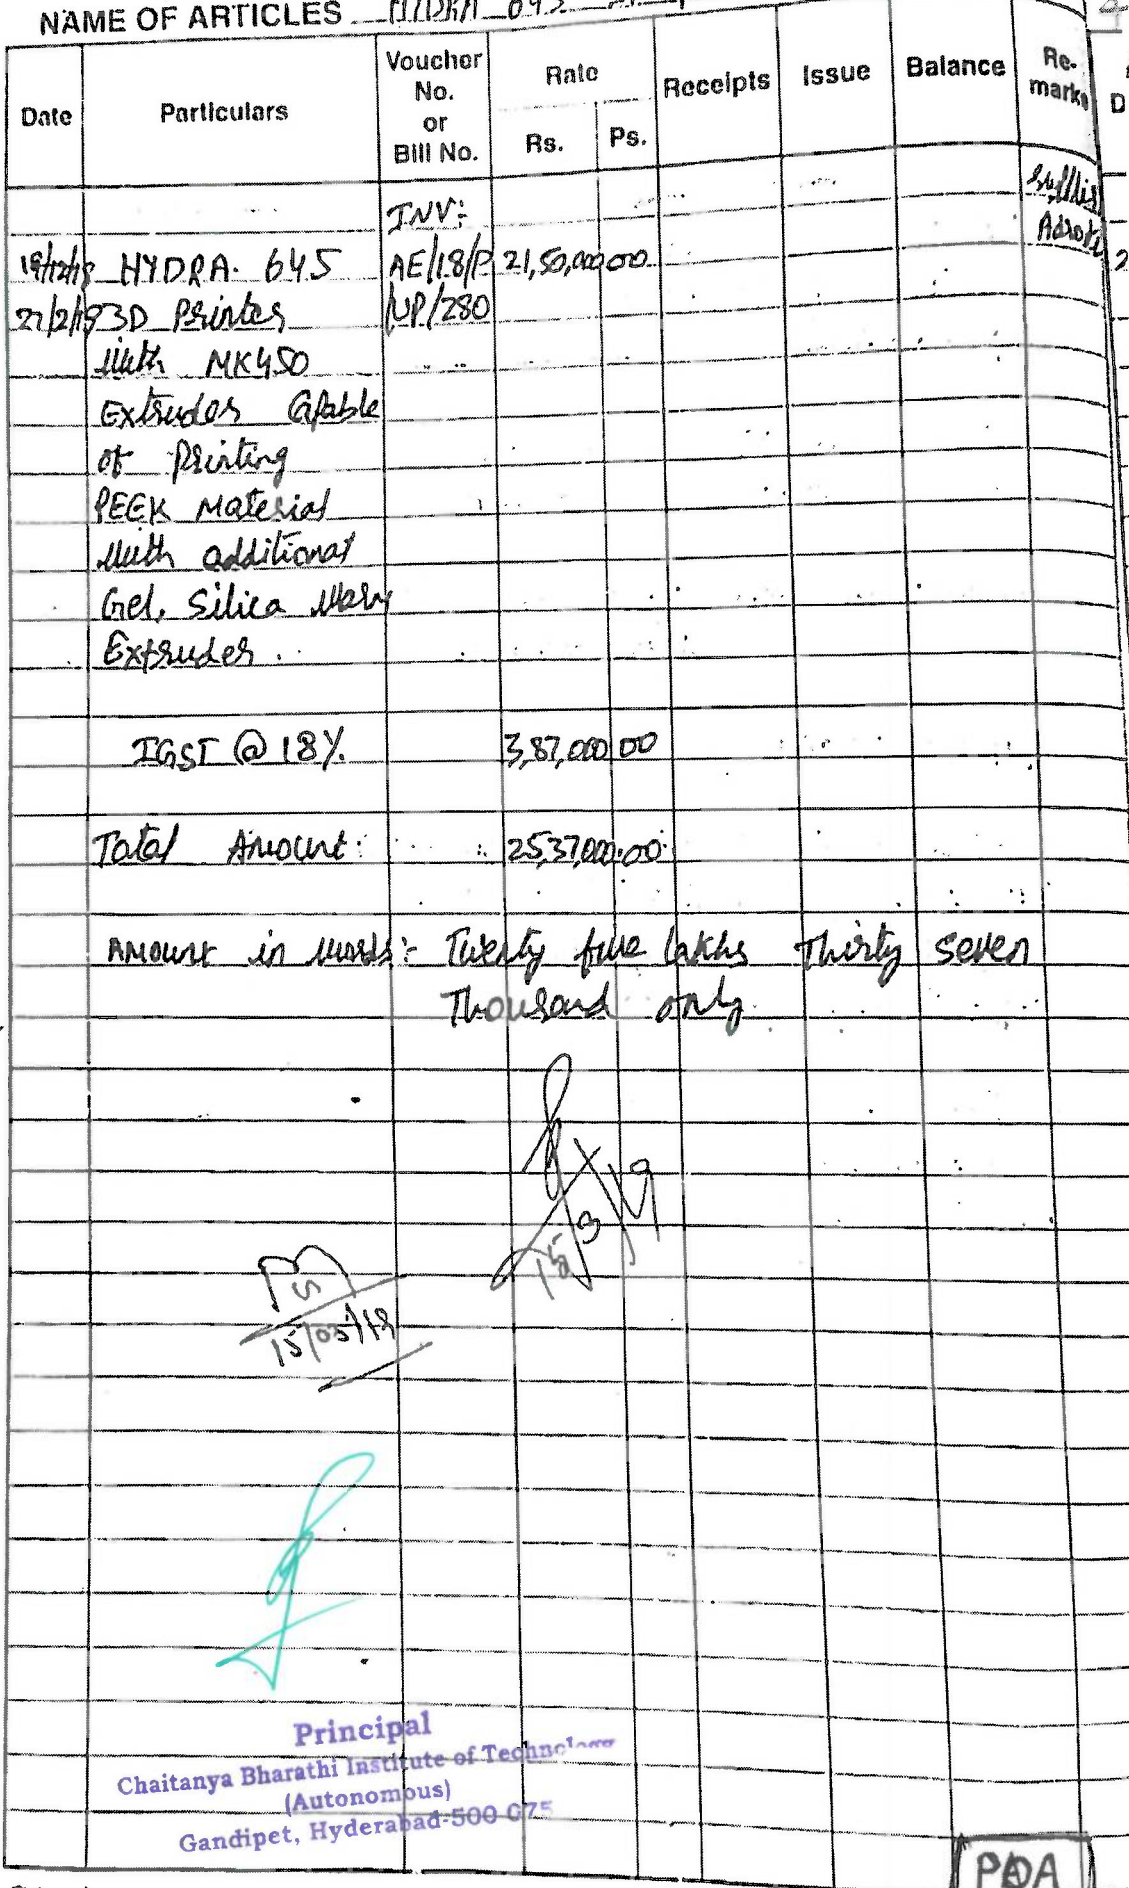 NAME OF ARTICLES HYDRA 645
Date Particulars Voucher No. or Bill No. Rate Rs. Ps. Receipts Issue Balance Re-marks
INV:
19/12/18 HYDRA. 645 AE/18/P 21,50,000 00
27/2/19 3D Printer /UP/280
with MK450
Extruder Capable
of Printing
PEEK Material
with additional
Gel, Silica
Extruder.
IGST @ 18%. 3,87,000 00
Total Amount: 25,37,000.00
Amount in words:- Twenty five lakhs Thirty Seven
Thousand only
15/3/19
15/03/19
Principal
Chaitanya Bharathi Institute of Technology
(Autonomous)
Gandipet, Hyderabad-500 075